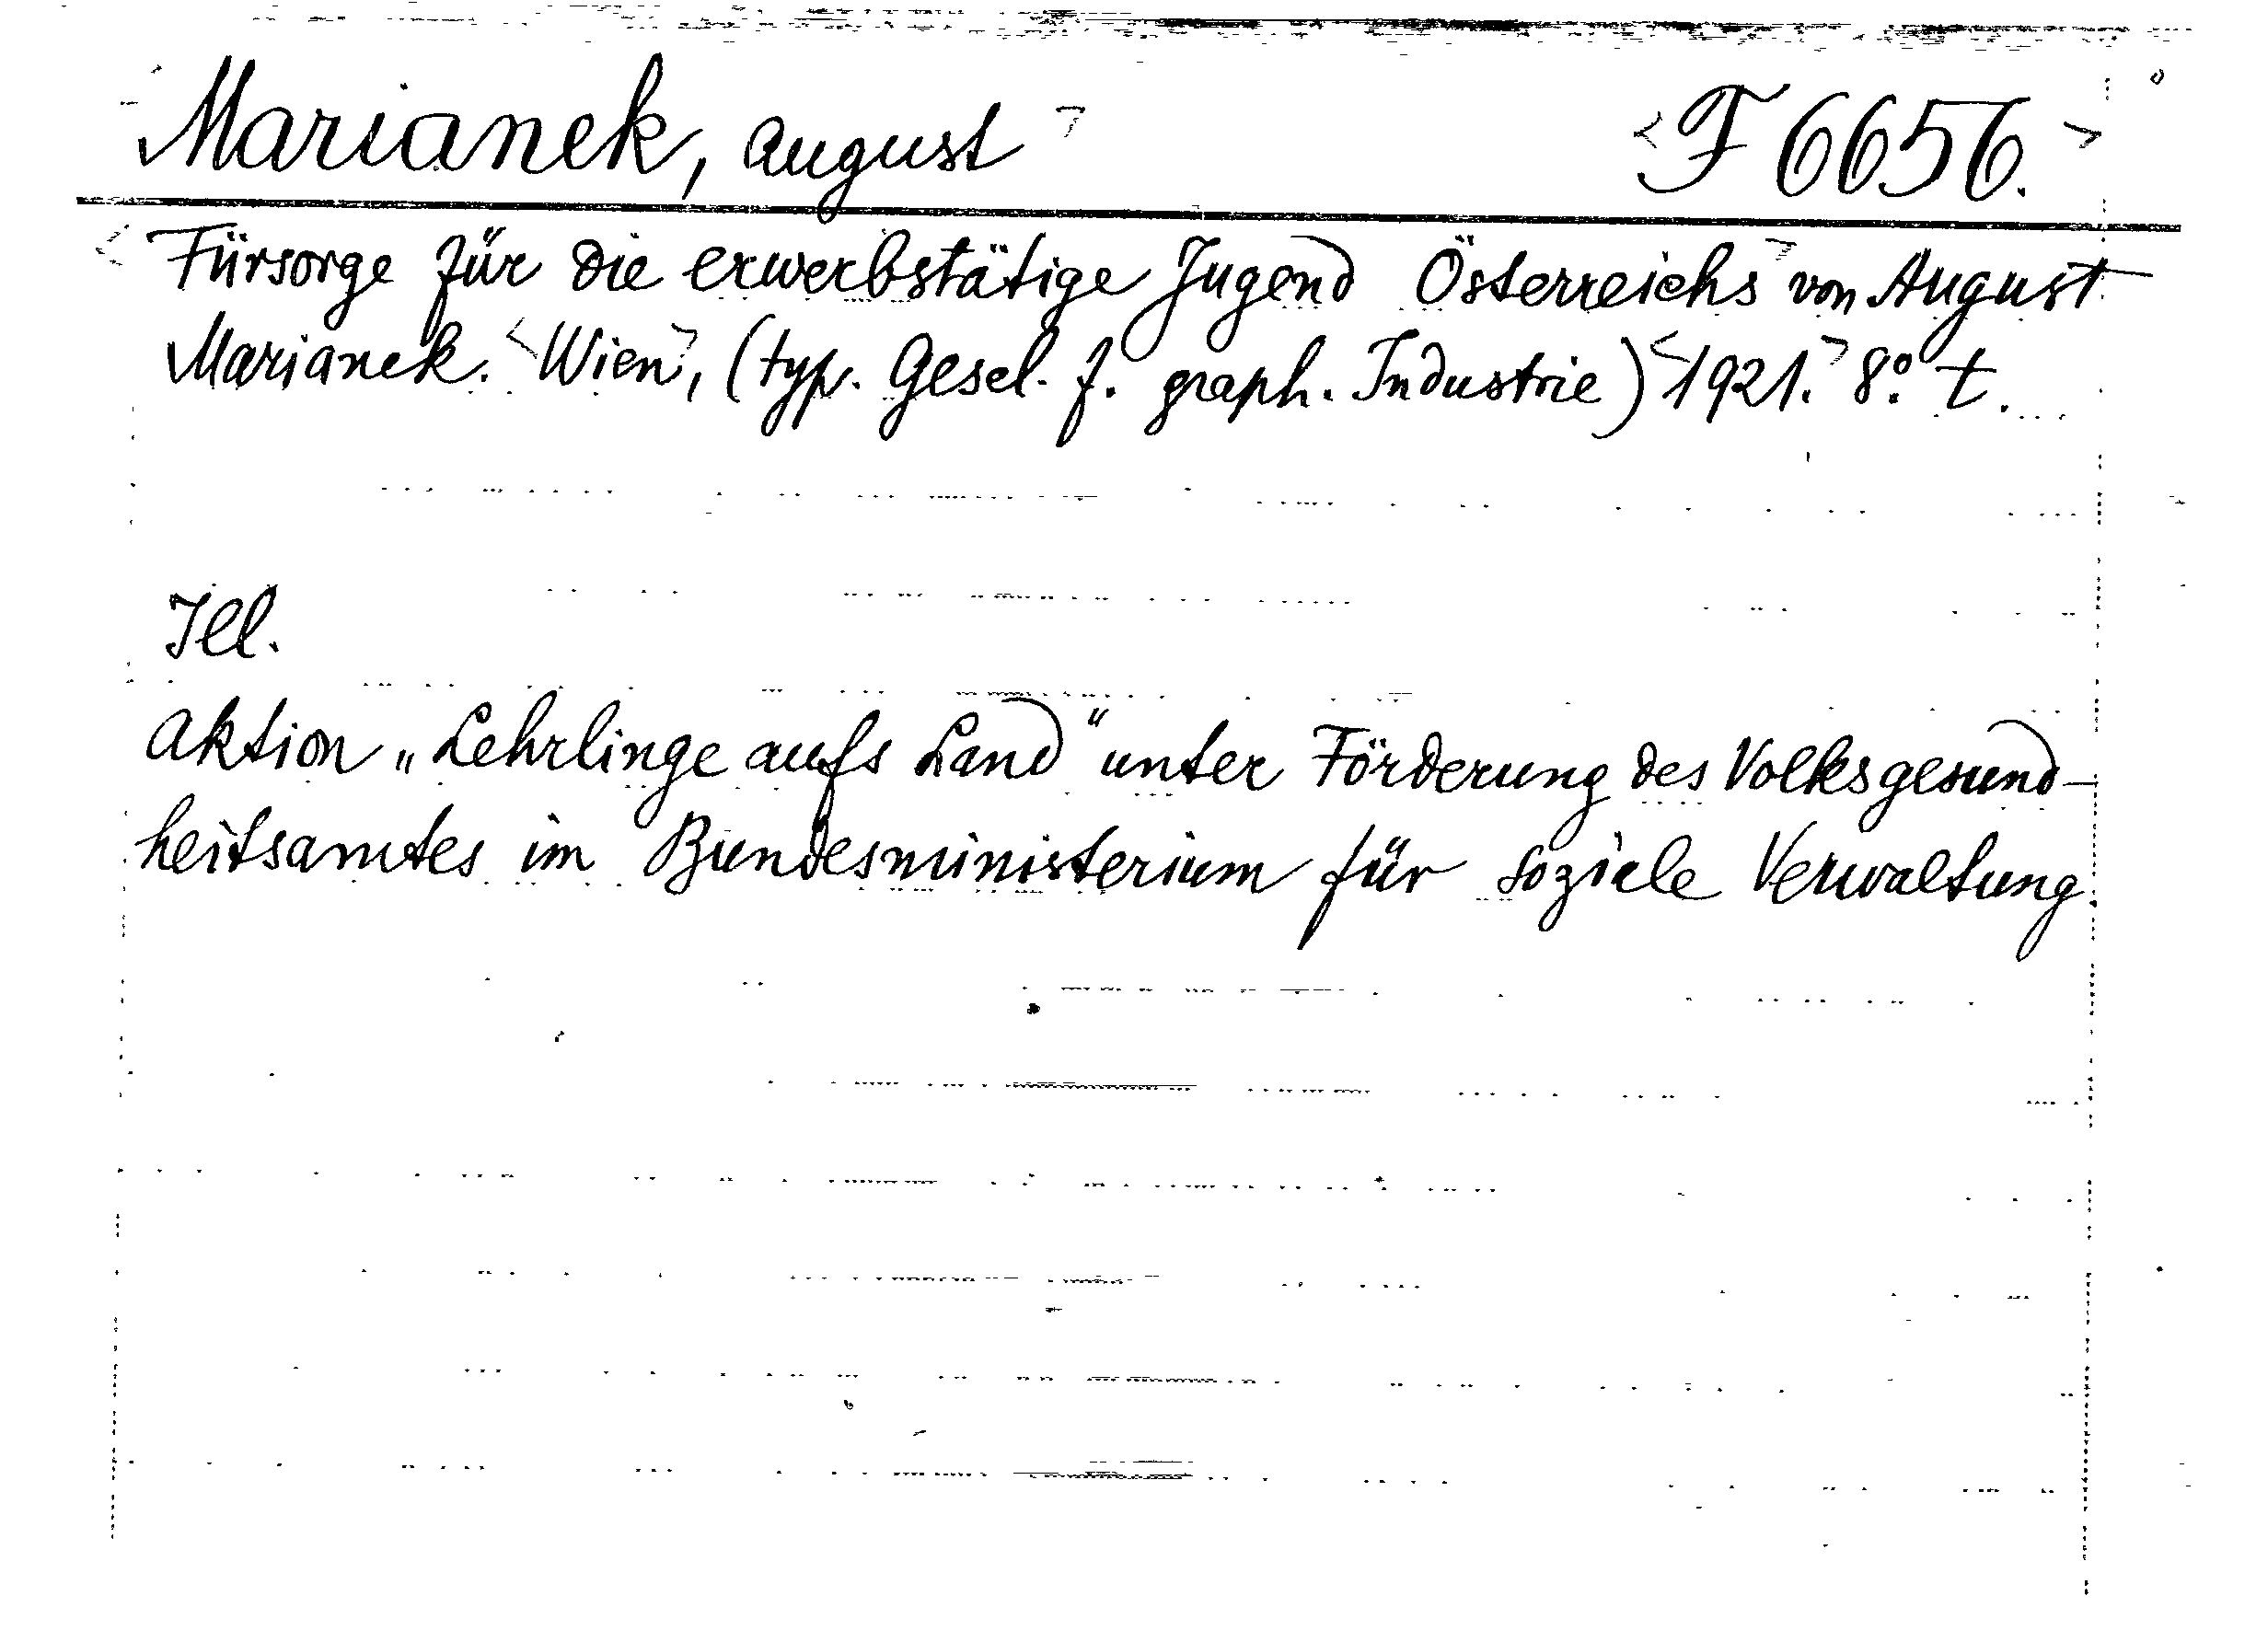 Marianek, August F 6656.
Fürsorge für die erwerbstätige Jugend Österreichs von August
Marianek. Wien, (typ. Gesel. f. graph. Industrie) 1921. 8º. t.
Ill.
Aktion „Lehrlinge aufs Land" unter Förderung des Volksgesund-
heitsamtes im Bundesministerium für soziale Verwaltung.